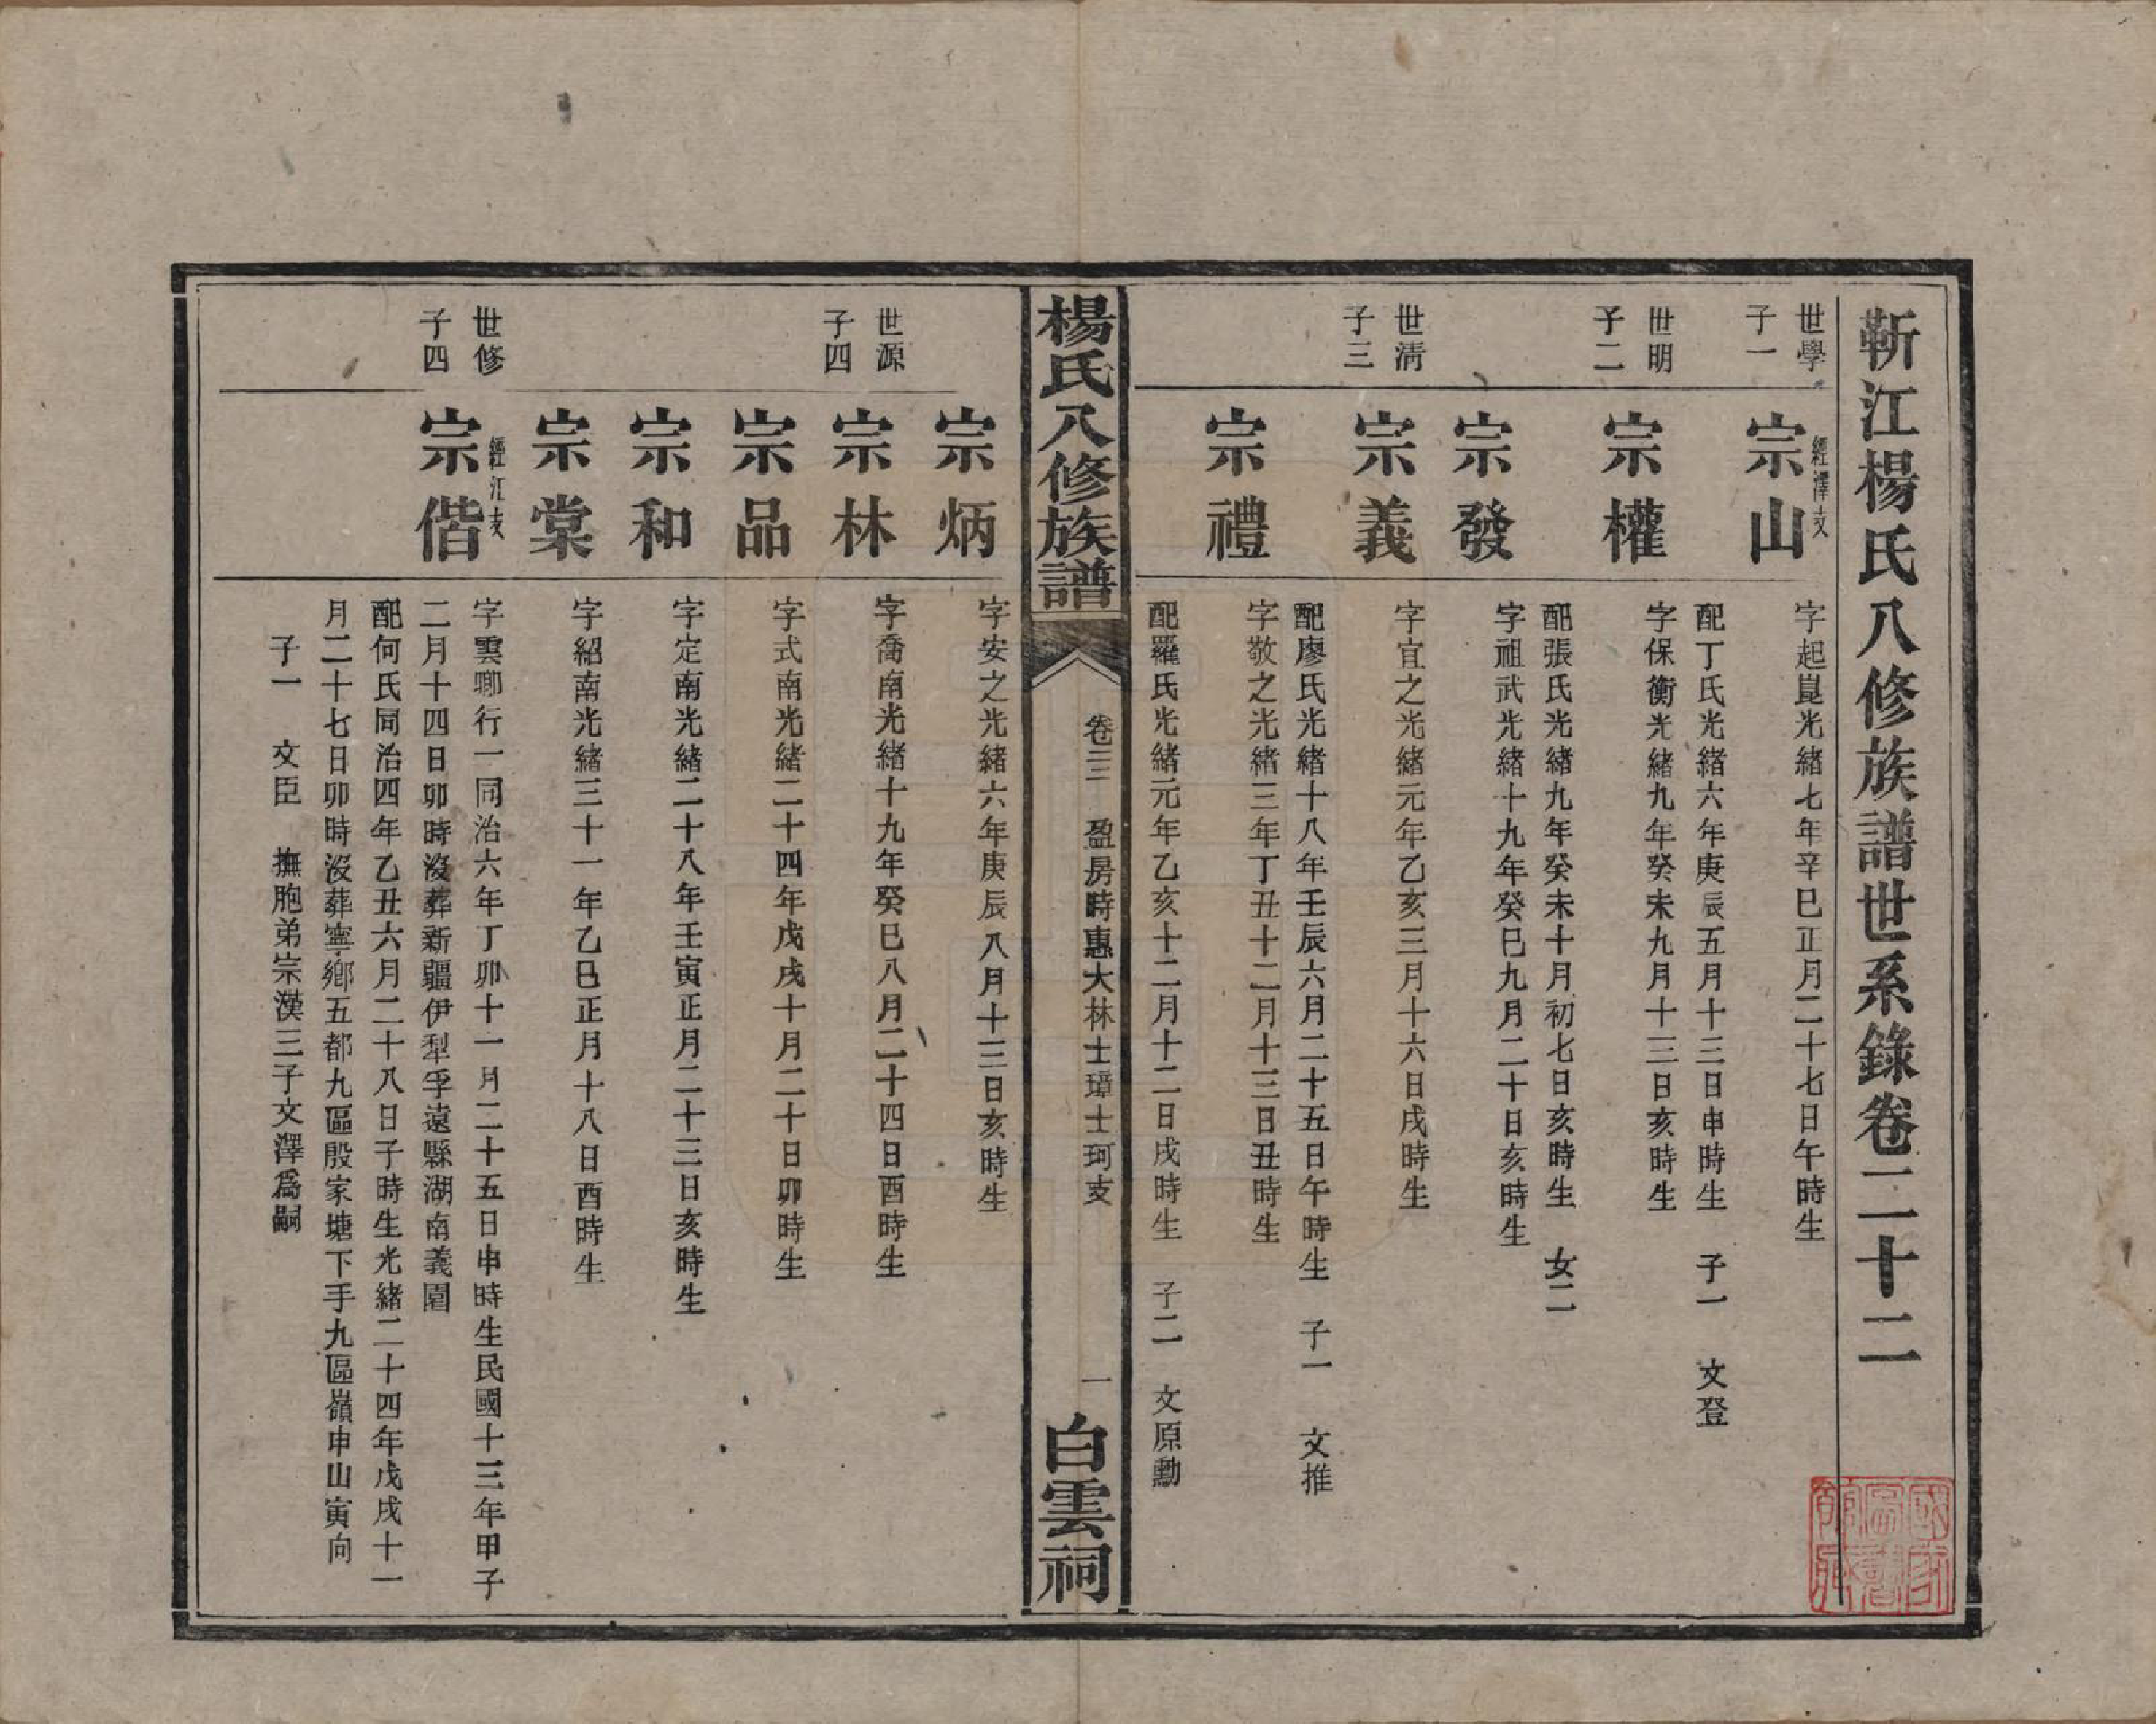 靳江楊氏八修族譜世系錄卷二十二
世學
子一
經澤支
宗山
字起崑光緒七年辛巳正月二十七日午時生
配丁氏光緒六年庚辰五月十三日申時生 子一 文登
世明
子二
宗權
字保衡光緒九年癸未九月十三日亥時生
配張氏光緒九年癸未十月初七日亥時生 女二
宗發
字祖武光緒十九年癸巳九月二十日亥時生
世淸
子三
宗義
字宜之光緒元年乙亥三月十六日戌時生
配廖氏光緒十八年壬辰六月二十五日午時生 子一 文推
宗禮
字敬之光緒三年丁丑十二月十三日丑時生
配羅氏光緒元年乙亥十二月十二日戌時生 子二 文原勳
楊氏八修族譜
卷二三 盈房時惠大林士璋士珂支
一
白雲祠
宗炳
字安之光緒六年庚辰八月十三日亥時生
世源
子四
宗林
字喬南光緒十九年癸巳八月二十四日酉時生
宗品
字式南光緒二十四年戊戌十月二十日卯時生
宗和
字定南光緒二十八年壬寅正月二十三日亥時生
宗棠
字紹南光緒三十一年乙巳正月十八日酉時生
世修
子四
經江支
宗偕
字雲卿行一同治六年丁卯十一月二十五日申時生民國十三年甲子
二月十四日卯時沒葬新疆伊犁孚遠縣湖南義園
配何氏同治四年乙丑六月二十八日子時生光緒二十四年戊戌十一
月二十七日卯時沒葬寧鄉五都九區殷家塘下手九區嶺申山寅向
子一 文臣 撫胞弟宗漢三子文澤爲嗣